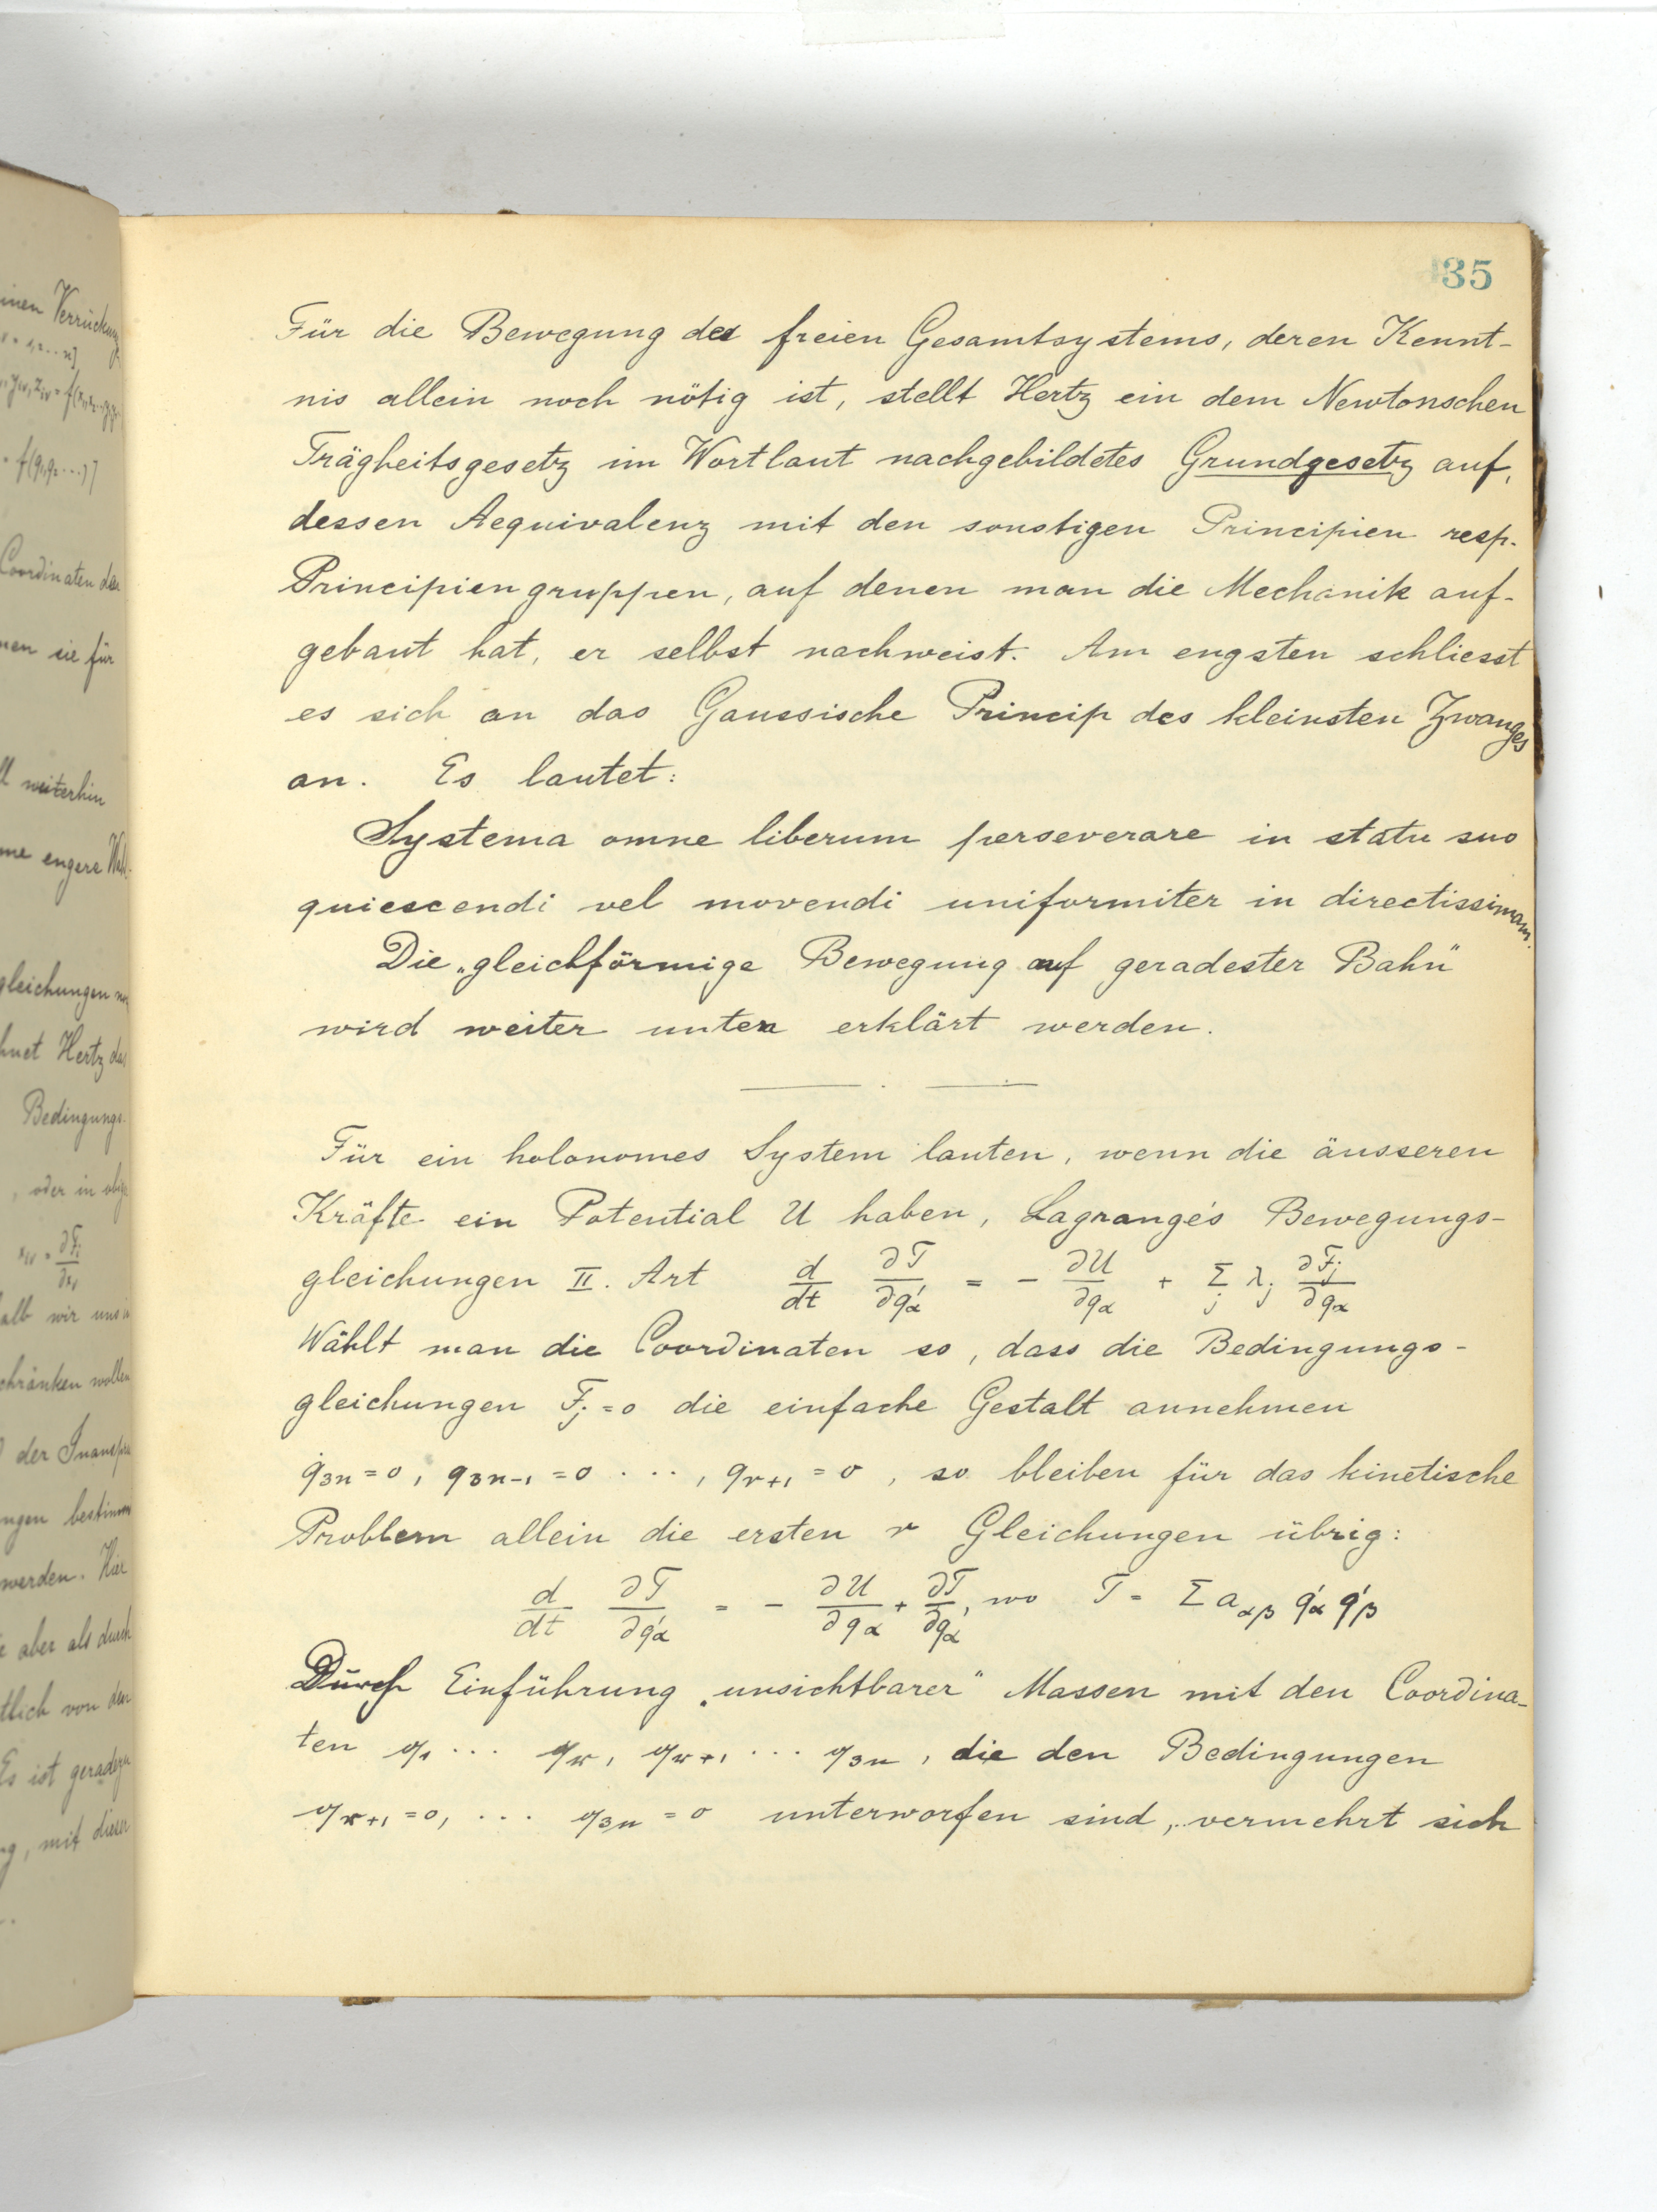 35
Für die Bewegung des freien Gesamtsystems, deren Kennt-
nis allein noch nötig ist, stellt Hertz ein dem Newtonschen
Trägheitsgesetz im Wortlaut nachgebildetes Grundgesetz auf,
dessen Aequivalenz mit den sonstigen Principien resp.
Principiengruppen, auf denen man die Mechanik auf-
gebaut hat, er selbst nachweist. Am engsten schliesst
es sich an das Gaussische Princip des kleinsten Zwanges
an. Es lautet:
Systema omne liberum perseverare in statu suo
quiescendi vel movendi uniformiter in directissimam.
Die „gleichförmige Bewegung auf geradester Bahn“
wird weiter unten erklärt werden.
Für ein holonomes System lauten, wenn die äusseren
Kräfte ein Potential U haben, Lagrange's Bewegungs-
gleichungen II. Art d/dt ∂T/∂q'α = - ∂U/∂qα + Σj λj ∂Fj/∂qα
Wählt man die Coordinaten so, dass die Bedingungs-
gleichungen Fj = 0 die einfache Gestalt annehmen
q3n = 0, q3n-1 = 0 ..., qr+1 = 0, so bleiben für das kinetische
Problem allein die ersten r Gleichungen übrig:
d/dt ∂T/∂q'α = - ∂U/∂qα + ∂T/∂qα, wo T = Σ aαβ q'α q'β
Durch Einführung „unsichtbarer“ Massen mit den Coordina-
ten q1 ... qr, qr+1 ... q3n, die den Bedingungen
qr+1 = 0, ... q3n = 0 unterworfen sind, vermehrt sich
inen Verrückung
Coordinaten der
nen sie für
weiterhin
me engere
gleichungen
hnet Hertz das
Bedingungs-
, oder in
alb wir uns
chränken wollen
der
ngen
werden. Hier
e aber als durch
tlich von den
Es ist geradezu
ng, mit dieser